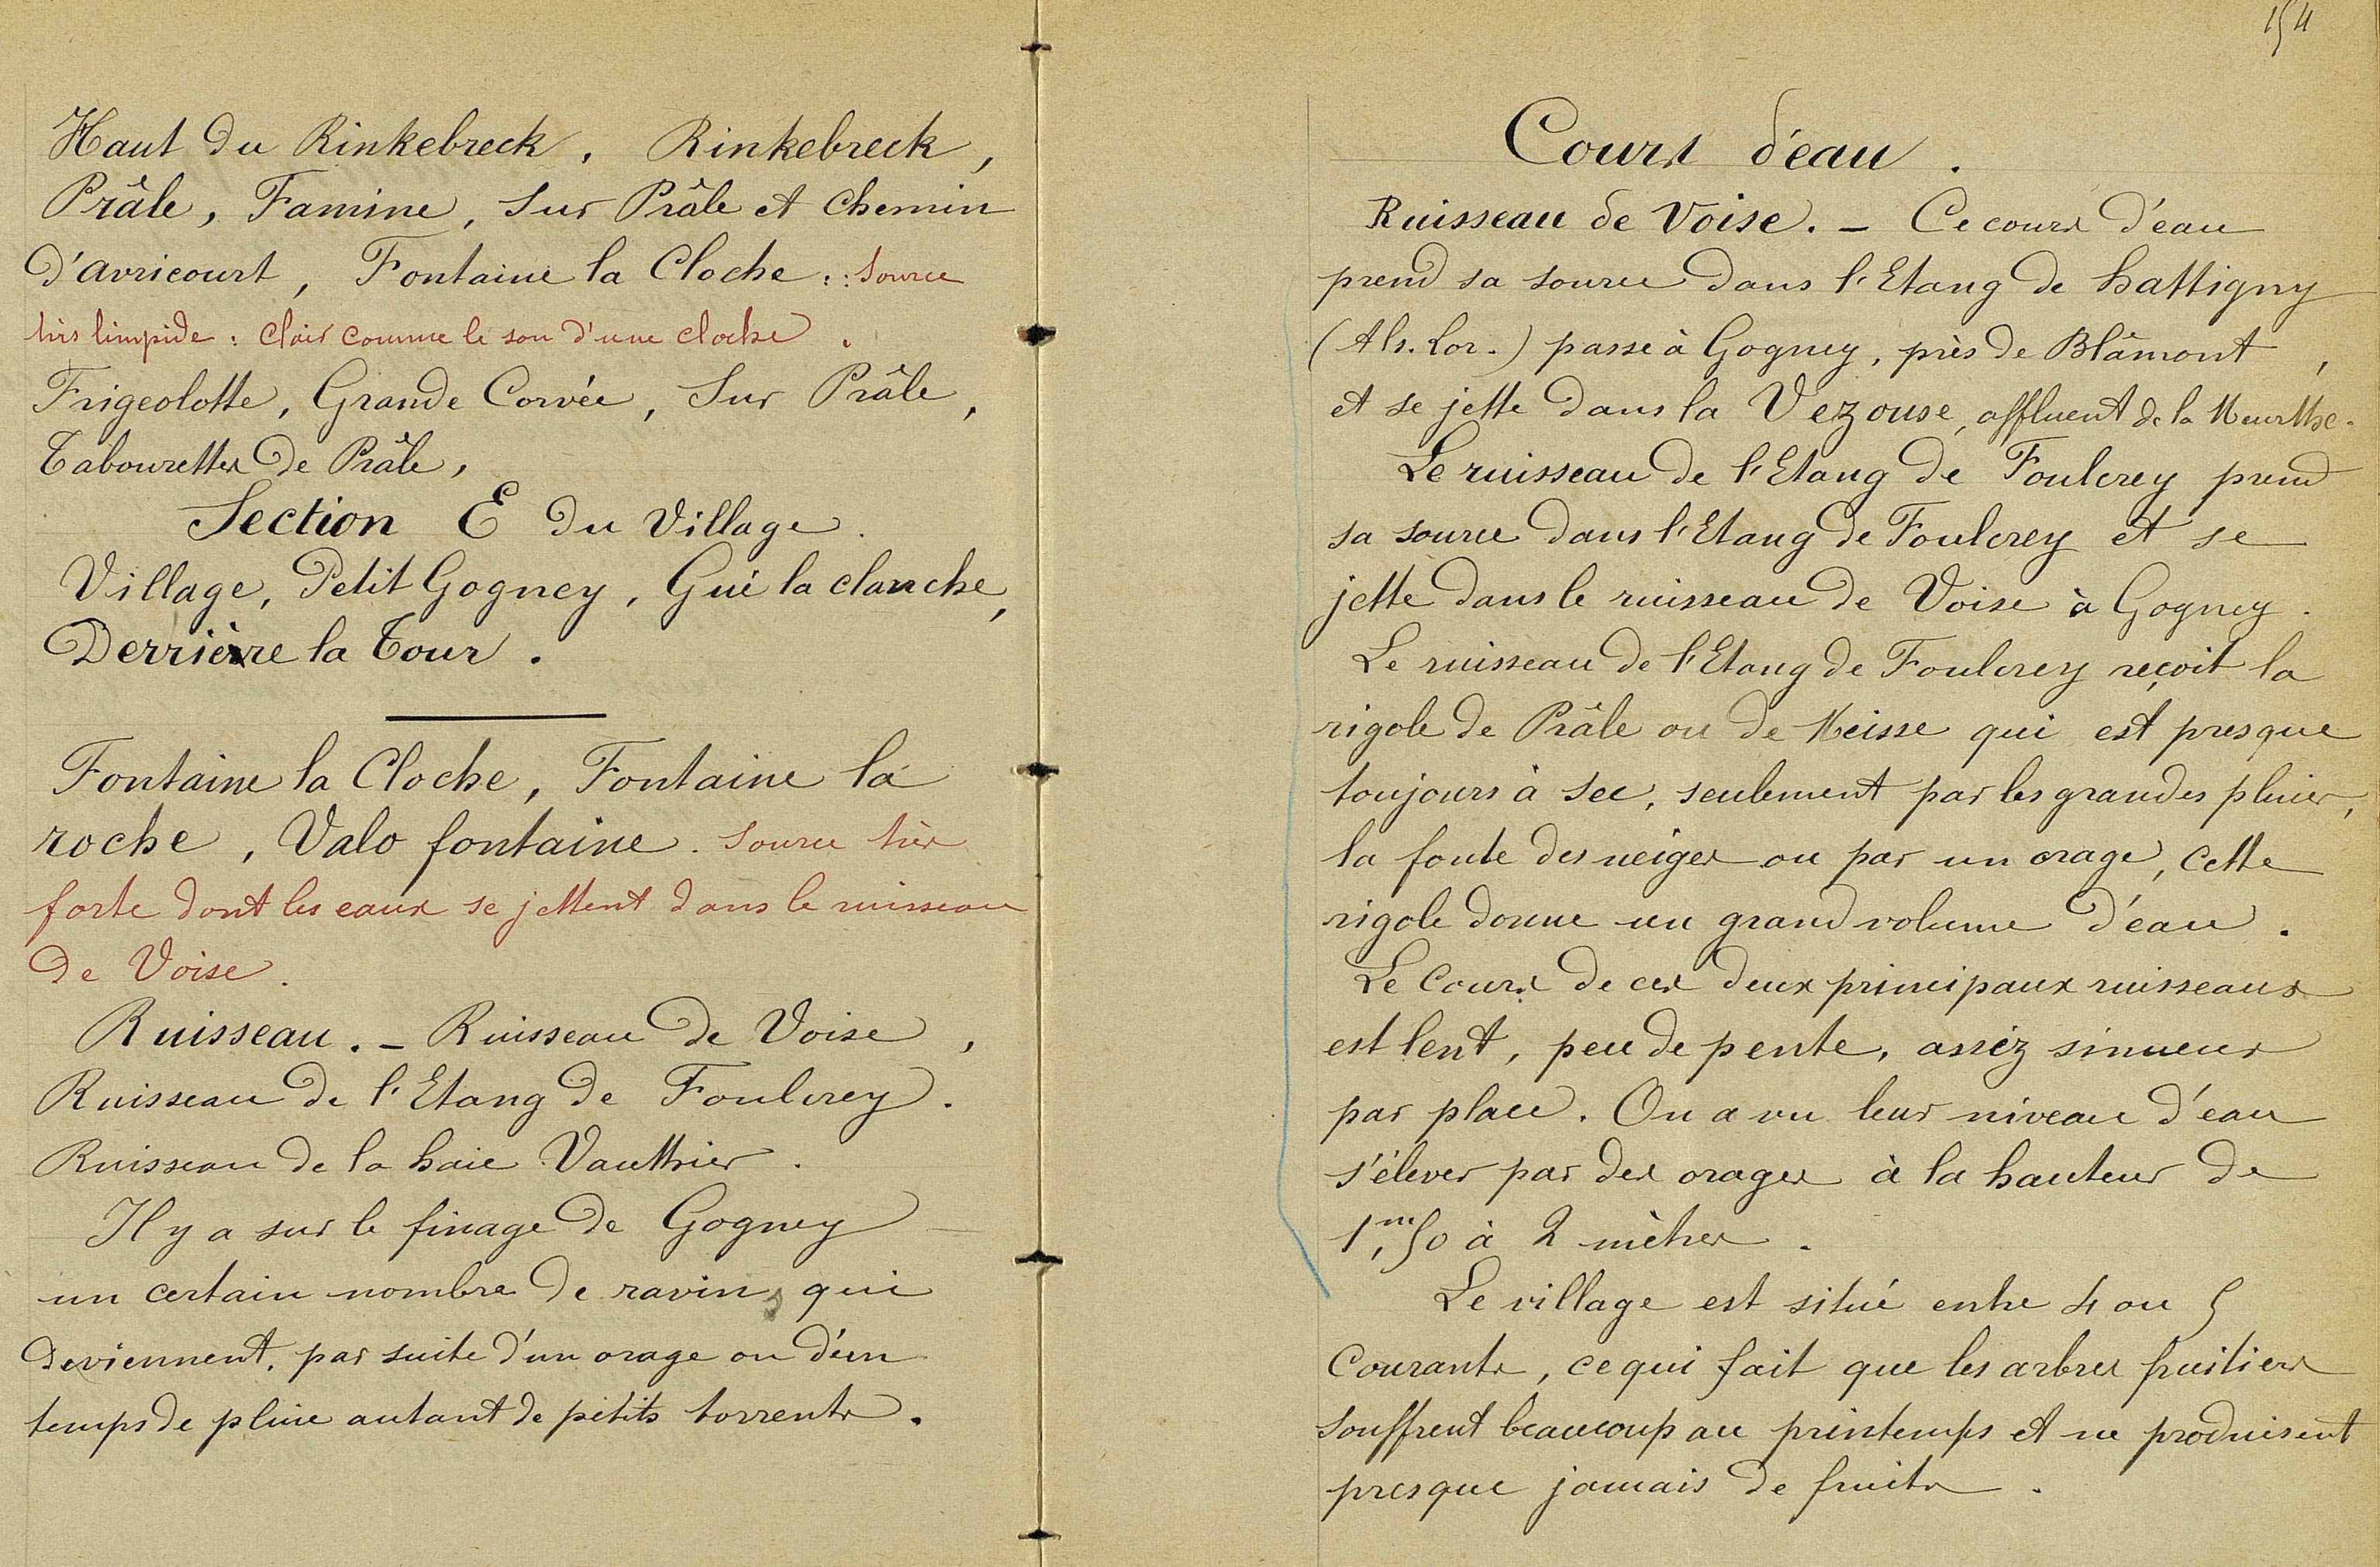 Haut du Rinkebreck, Rinkebreck,
Prâle, Famine, Sur Prâle et Chemin
d'avricourt, Fontaine la Cloche :: Source
très limpide : Clair comme le son d'une cloche.
Frigeolotte, Grande Corvée, Sur Prâle,
Tabourettes de Prâle,
Section E du Village.
Village, Petit Gogney, Gué la clanche,
Derrière la Tour.
Fontaine la Cloche, Fontaine la
roche, Valo fontaine. Source très
forte dont les eaux se jettent dans le ruisseau
de Voise.
Ruisseau. - Ruisseau de Voise,
Ruisseau de l'Etang de Foulcrey.
Ruisseau de la haie Vauthier.
Il y a sur le finage de Gogney
un certain nombre de ravins qui
deviennent, par suite d'un orage ou d'un
temps de pluie autant de petits torrents.
154
Cours d'eau.
Ruisseau de Voise. - Ce cours d'eau
prend sa source dans l'Etang de hattigny
(Als. Lor.) passe à Gogney, près de Blâmont,
et se jette dans la Vezouse, affluent de la Meurthe.
Le ruisseau de l'Etang de Foulcrey prend
sa source dans l'Etang de Foulcrey et se
jette dans le ruisseau de Voise à Gogney.
Le ruisseau de l'Etang de Foulcrey reçoit la
rigole de Prâle ou de Meisse qui est presque
toujours à sec, seulement par les grandes pluies,
la fonte des neiges ou par un orage, cette
rigole donne un grand volume d'eau.
Le Cours de ces deux principaux ruisseaux
est lent, peu de pente, assez sinueux
par place. On a vu leur niveau d'eau
s'élever par des orages à la hauteur de
1,m50 à 2 mètres.
Le village est situé entre 4 ou 5
Courants, ce qui fait que les arbres fruitiers
souffrent beaucoup au printemps et ne produisent
presque jamais de fruits.